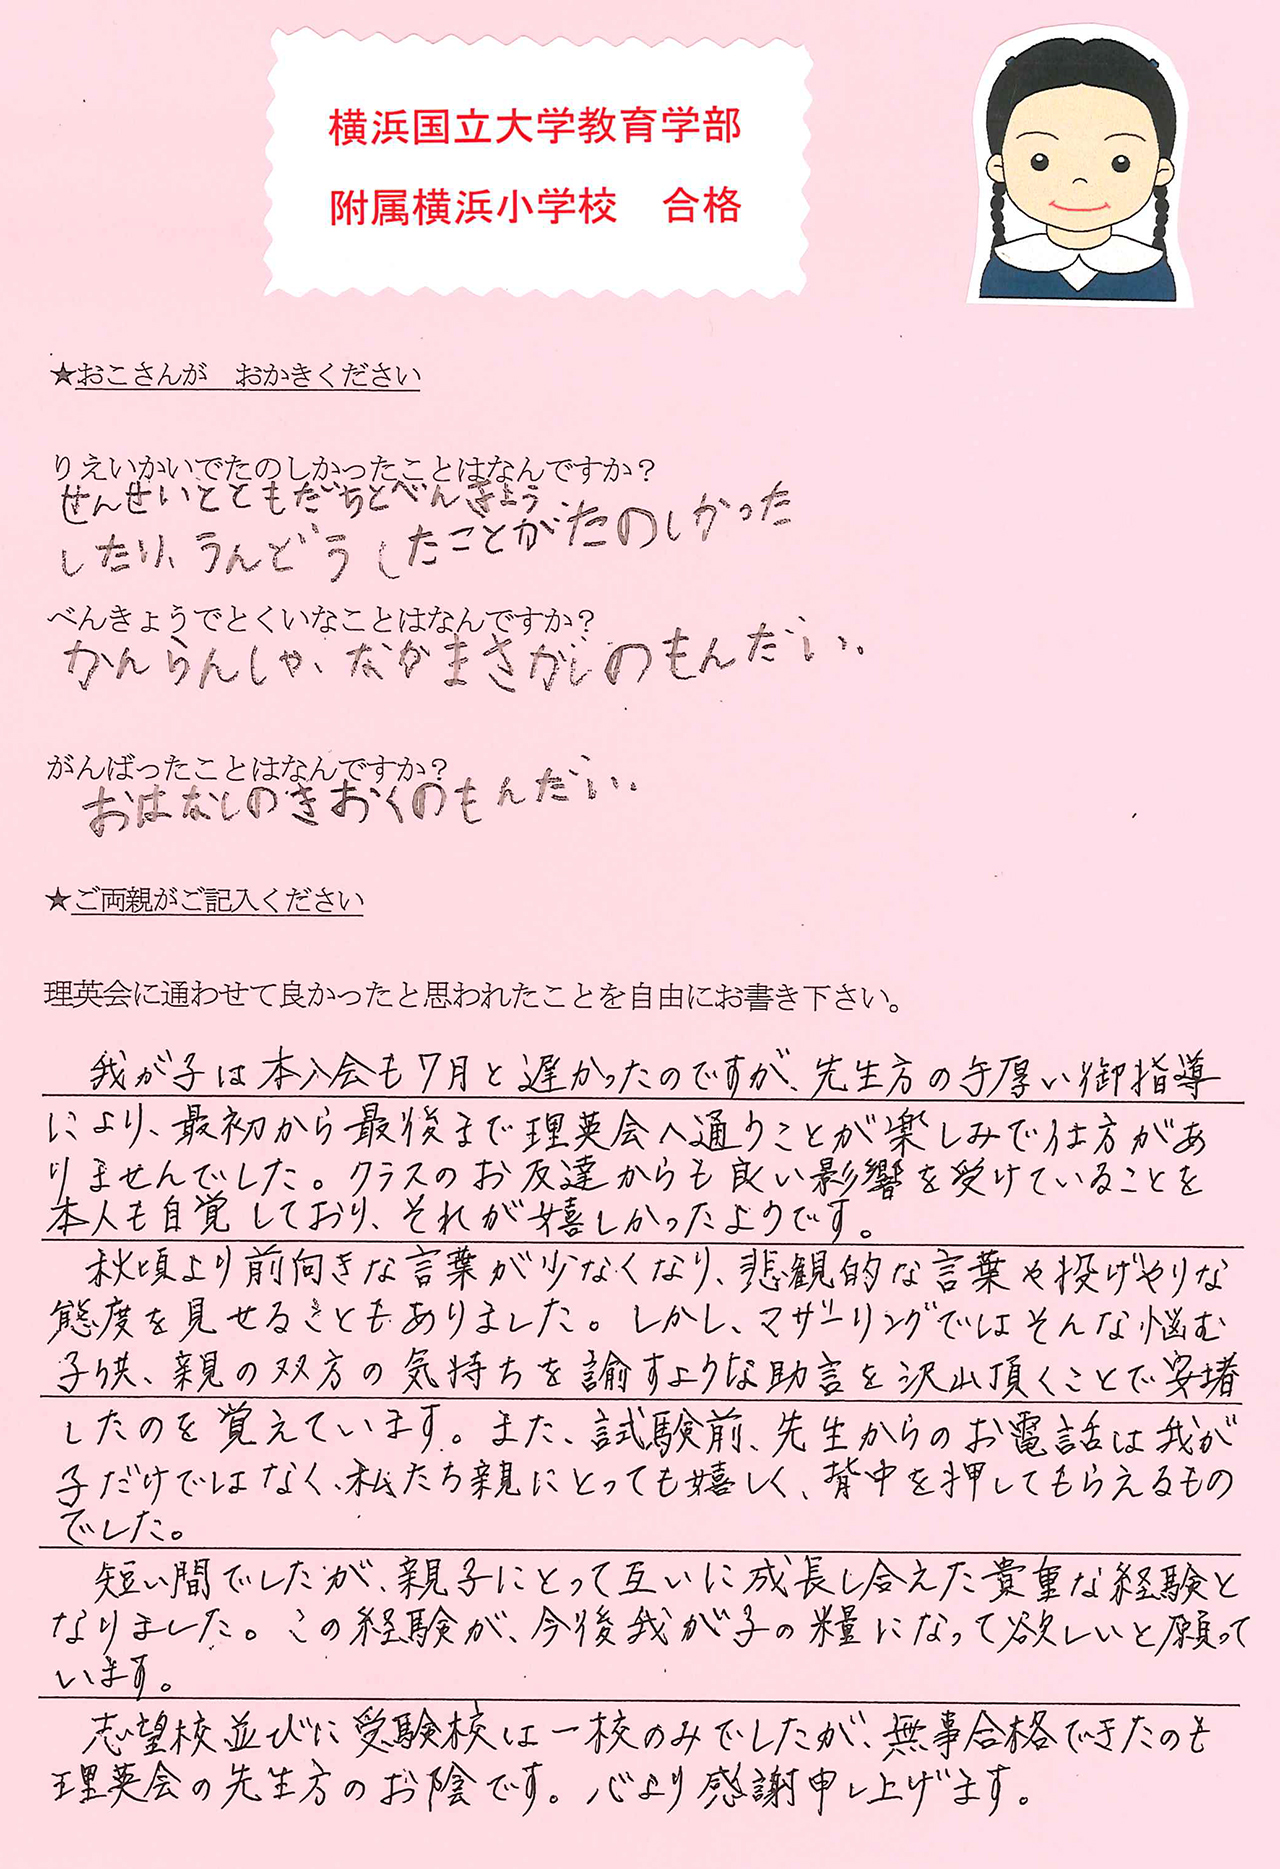 横浜国立大学教育学部
附属横浜小学校　合格
★おこさんが　おかきください
りえいかいでたのしかったことはなんですか？
せんせいとともだちとべんきょう
したり、うんどうしたことがたのしかった
べんきょうでとくいなことはなんですか？
かんらんしゃ、なかまさがしのもんだい。
がんばったことはなんですか？
おはなしのきおくのもんだい。
★ご両親がご記入ください
理英会に通わせて良かったと思われたことを自由にお書き下さい。
我が子は本入会も7月と遅かったのですが、先生方の手厚い御指導
により、最初から最後まで理英会へ通うことが楽しみで仕方があ
りませんでした。クラスのお友達からも良い影響を受けていることを
本人も自覚しており、それが嬉しかったようです。
秋頃より前向きな言葉が少なくなり、悲観的な言葉や投げやりな
態度を見せるきともありました。しかし、マザーリングではそんな悩む
子供、親の双方の気持ちを諭すような助言を沢山頂くことで安堵
したのを覚えています。また、試験前、先生からのお電話は我が
子だけではなく、私たち親にとっても嬉しく、背中を押してもらえるもの
でした。
短い間でしたが、親子にとって互いに成長し合えた貴重な経験と
なりました。この経験が、今後我が子の糧になって欲しいと願って
います。
志望校並びに受験校は一校のみでしたが、無事合格できたのも
理英会の先生方のお陰です。心より感謝申し上げます。